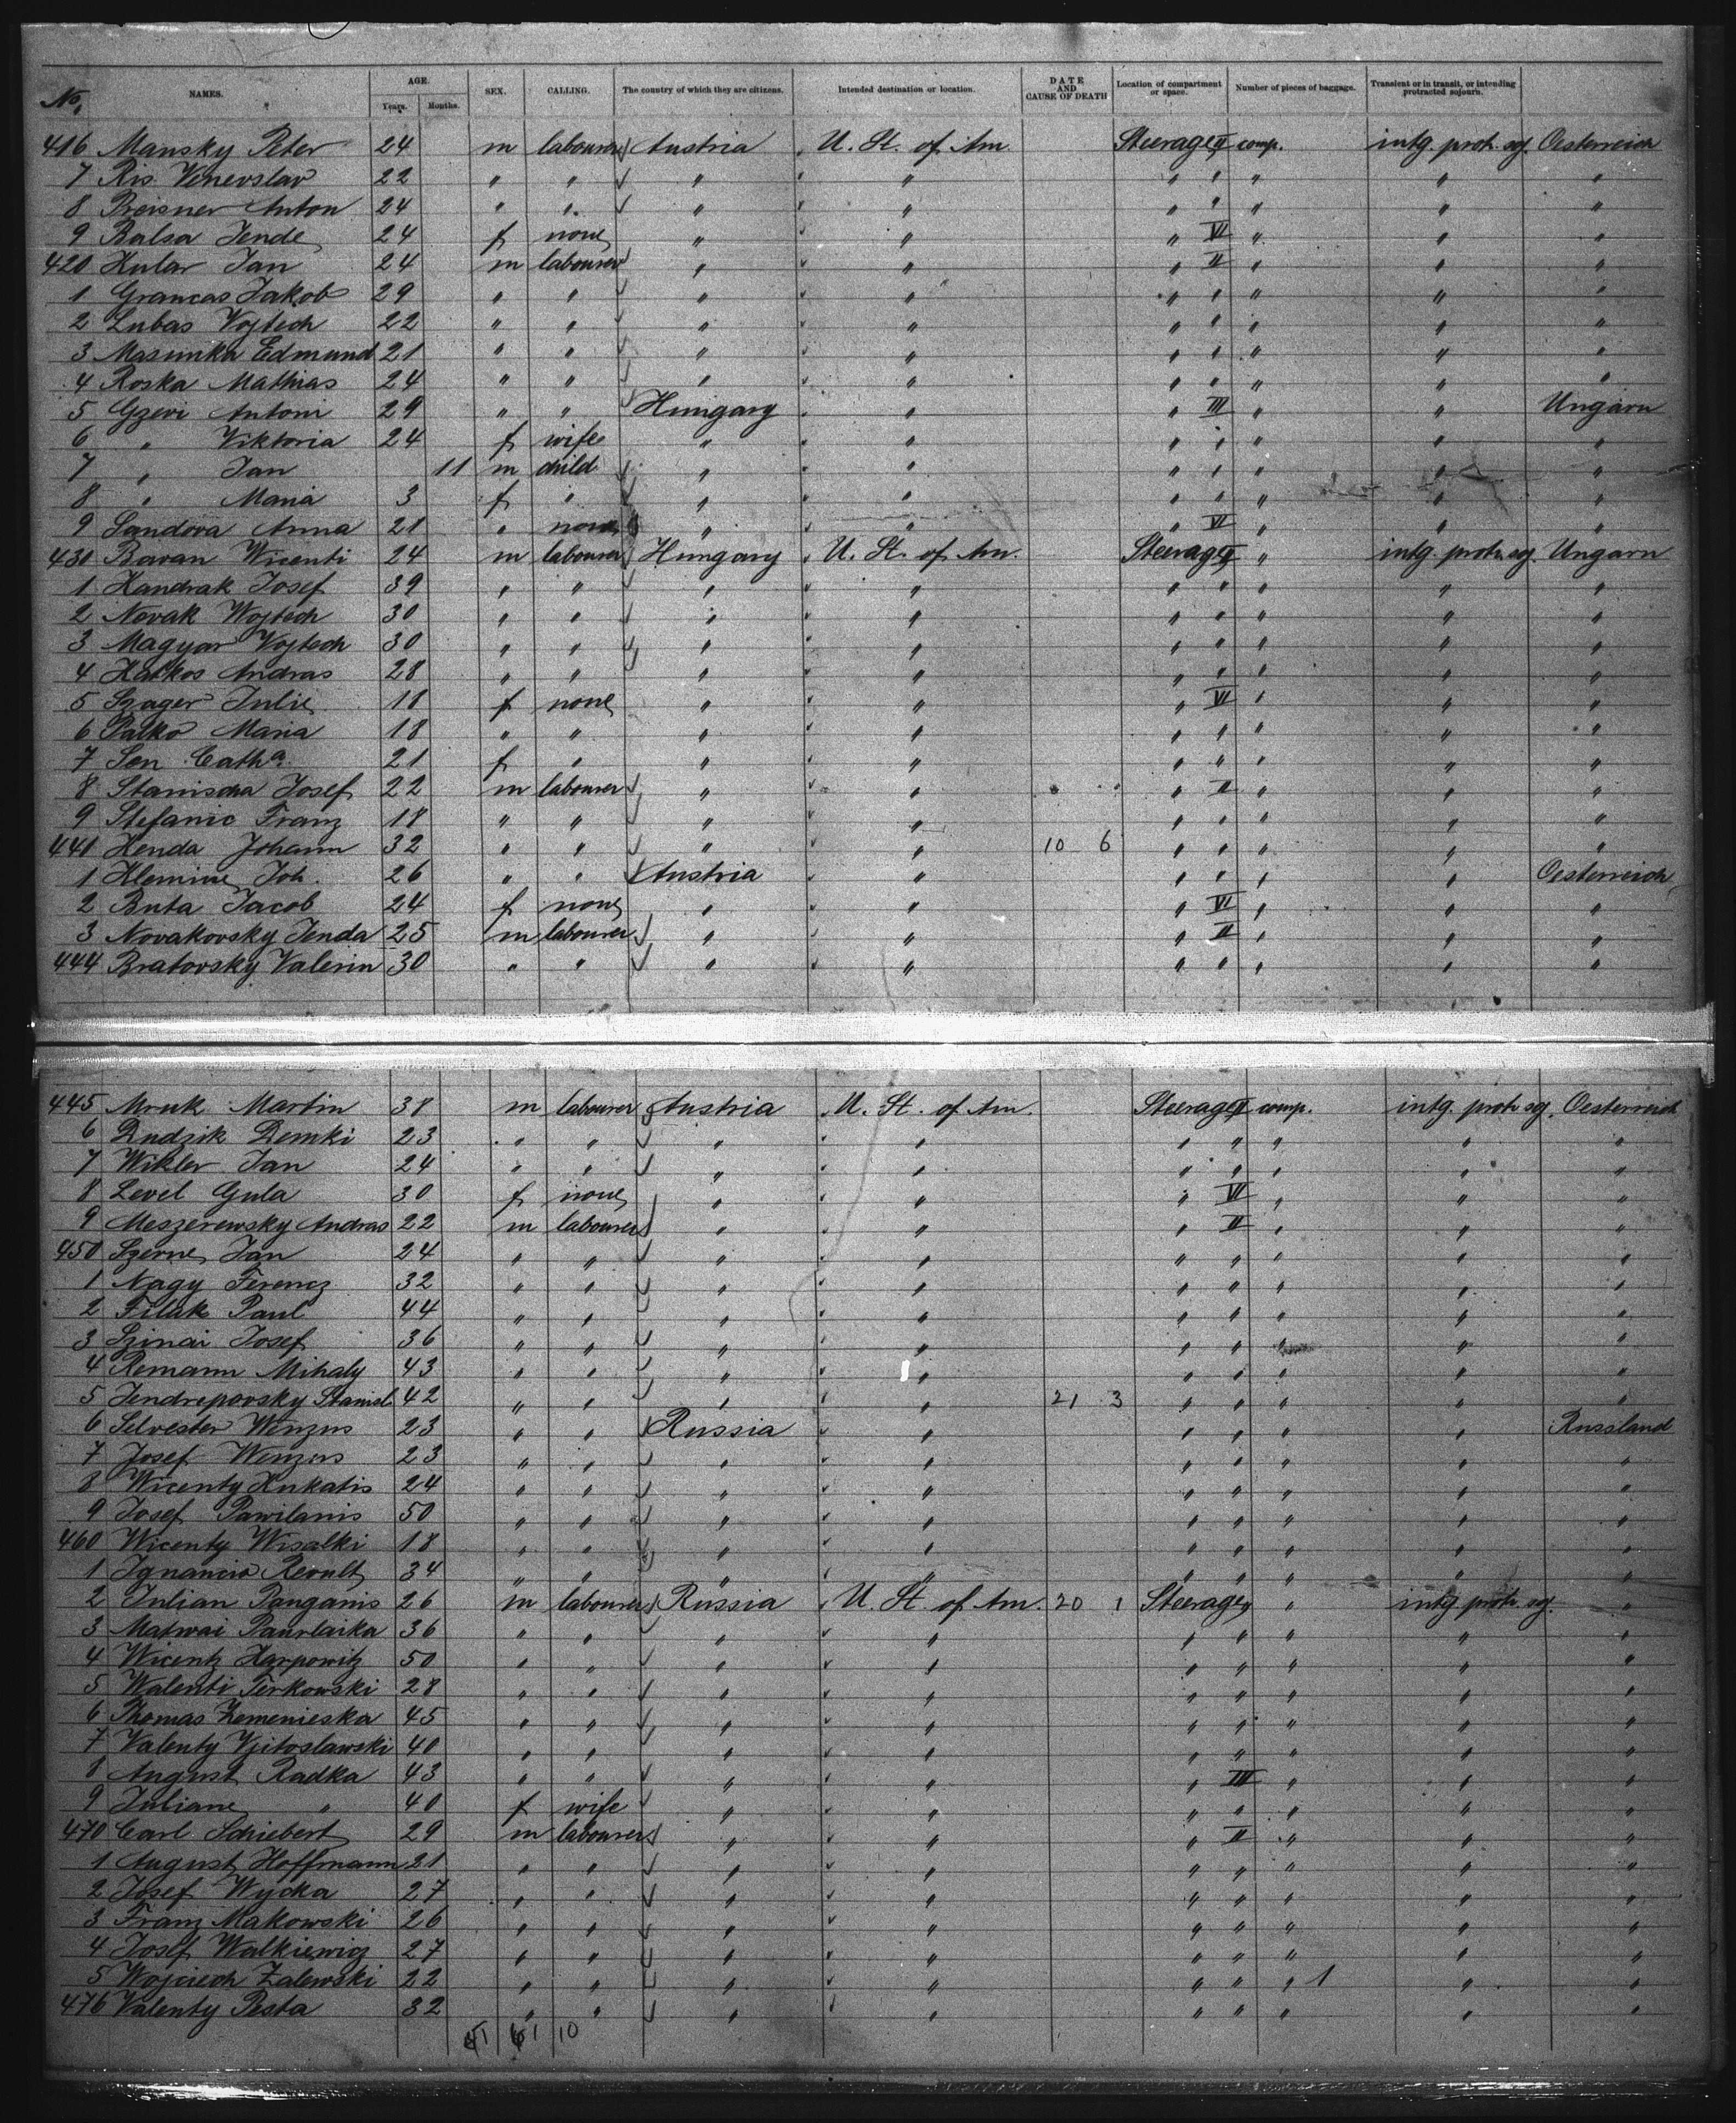 No. NAMES. AGE. Years. Months. SEX. CALLING. The country of which they are citizens. Intended destination or location. DATE AND CAUSE OF DEATH Location of compartment or space. Number of pieces of baggage. Transient or in transit, or intending protracted sojourn.
416 Mansky Peter 24 m labourer Austria U. St. of Am Steerage II comp. intg. prot. soj. Oesterreich
7 Ris 22 " " " " " " " " "
8 Preisner Anton 24 " " " " " " " " "
9 Balsa Jende 24 f none " " " VI " " "
420 Hular Jan 24 m labourer " " " II " " "
1 Grancas Jakob 29 " " " " " " " " "
2 Lubas Vojtech 22 " " " " " " " " "
3 Masunka Edmund 21 " " " " " " " " "
4 Roska Mathias 24 " " " " " " " " "
5 Gzevi Antoni 29 " " Hungary " " III " " Ungarn
6 " Viktoria 24 f wife " " " " " " "
7 " Jan 11 m child " " " " " " "
8 " Maria 3 f " " " " " " " "
9 Sandova Anna 21 " none " " " VI " " "
430 Bavan Wicenti 24 m labourer Hungary U. St. of Am. Steerage II " intg. prot. soj. Ungarn
1 Handrak Josef 39 " " " " " " " " "
2 Novak Wojtech 30 " " " " " " " " "
3 Magyar Vojtech 30 " " " " " " " " "
4 Hatkos Andras 28 " " " " " " " " "
5 Szager Julie 18 f none " " " VI " " "
6 Palko Maria 18 " " " " " " " " "
7 Sen Cath.a 21 f " " " " " " " "
8 Stanischa Josef 22 m labourer " " " II " " "
9 Stefanic Franz 18 " " " " " " " " "
440 Henda Johann 32 " " " " 10 6 " " " " "
1 Klemine Joh. 26 " " Austria " " " " " Oesterreich
2 Buta Jacob 24 f none " " " VI " " "
3 Novakovsky Jenda 25 m labourer " " " II " " "
444 Bratovsky Valerin 30 " " " " " " " " "
445 Mruk Martin 38 m labourer Austria U. St. of Am. Steerage II comp. intg. prot. soj. Oesterreich
6 Dudzik Demki 23 " " " " " " " " "
7 Wikler Jan 24 " " " " " " " " "
8 Level Gula 30 f none " " " VI " " "
9 Meszerewsky Andras 22 m labourer " " " II " " "
450 Szerne Jan 24 " " " " " " " " "
1 Nagy Ferencz 32 " " " " " " " " "
2 Filak Paul 44 " " " " " " " " "
3 Szinai Josef 36 " " " " " " " " "
4 Remann Mihaly 43 " " " " " " " " "
5 Jendrepovsky Stanisl. 42 " " " " 21 3 " " " " "
6 Selvester Wenzus 23 " " Russia " " " " " Russland
7 Josef Wenzus 23 " " " " " " " " "
8 Wicenty Kukatis 24 " " " " " " " " "
9 Josef Pawilanis 50 " " " " " " " " "
460 Wicenty Wisalki 18 " " " " " " " " "
1 Ignancio Reoult 34 " " " " " " " " "
2 Julian Panganis 26 m labourer Russia U. St. of Am. 20 1 Steerage " " intg. prot. soj. "
3 Matwai Paurlaika 36 " " " " " " " " "
4 Wicenty Karpowitz 50 " " " " " " " " "
5 Walenti Terkowski 28 " " " " " " " " "
6 Thomas Zemenieska 45 " " " " " " " " "
7 Valenty Vjitoslawski 40 " " " " " " " " "
8 August Radka 43 " " " " " III " " "
9 Juliane " 40 f wife " " " " " " "
470 Carl Schiebert 29 m labourer " " " II " " "
1 August Hoffmann 21 " " " " " " " " "
2 Josef Wycka 27 " " " " " " " " "
3 Franz Makowski 26 " " " " " " " " "
4 Josef Walkiewicz 27 " " " " " " " " "
5 Wojciech Zalewski 22 " " " " " " " 1 " "
476 Valenty Pesta 32 " " " " " " " " "
51 61 10